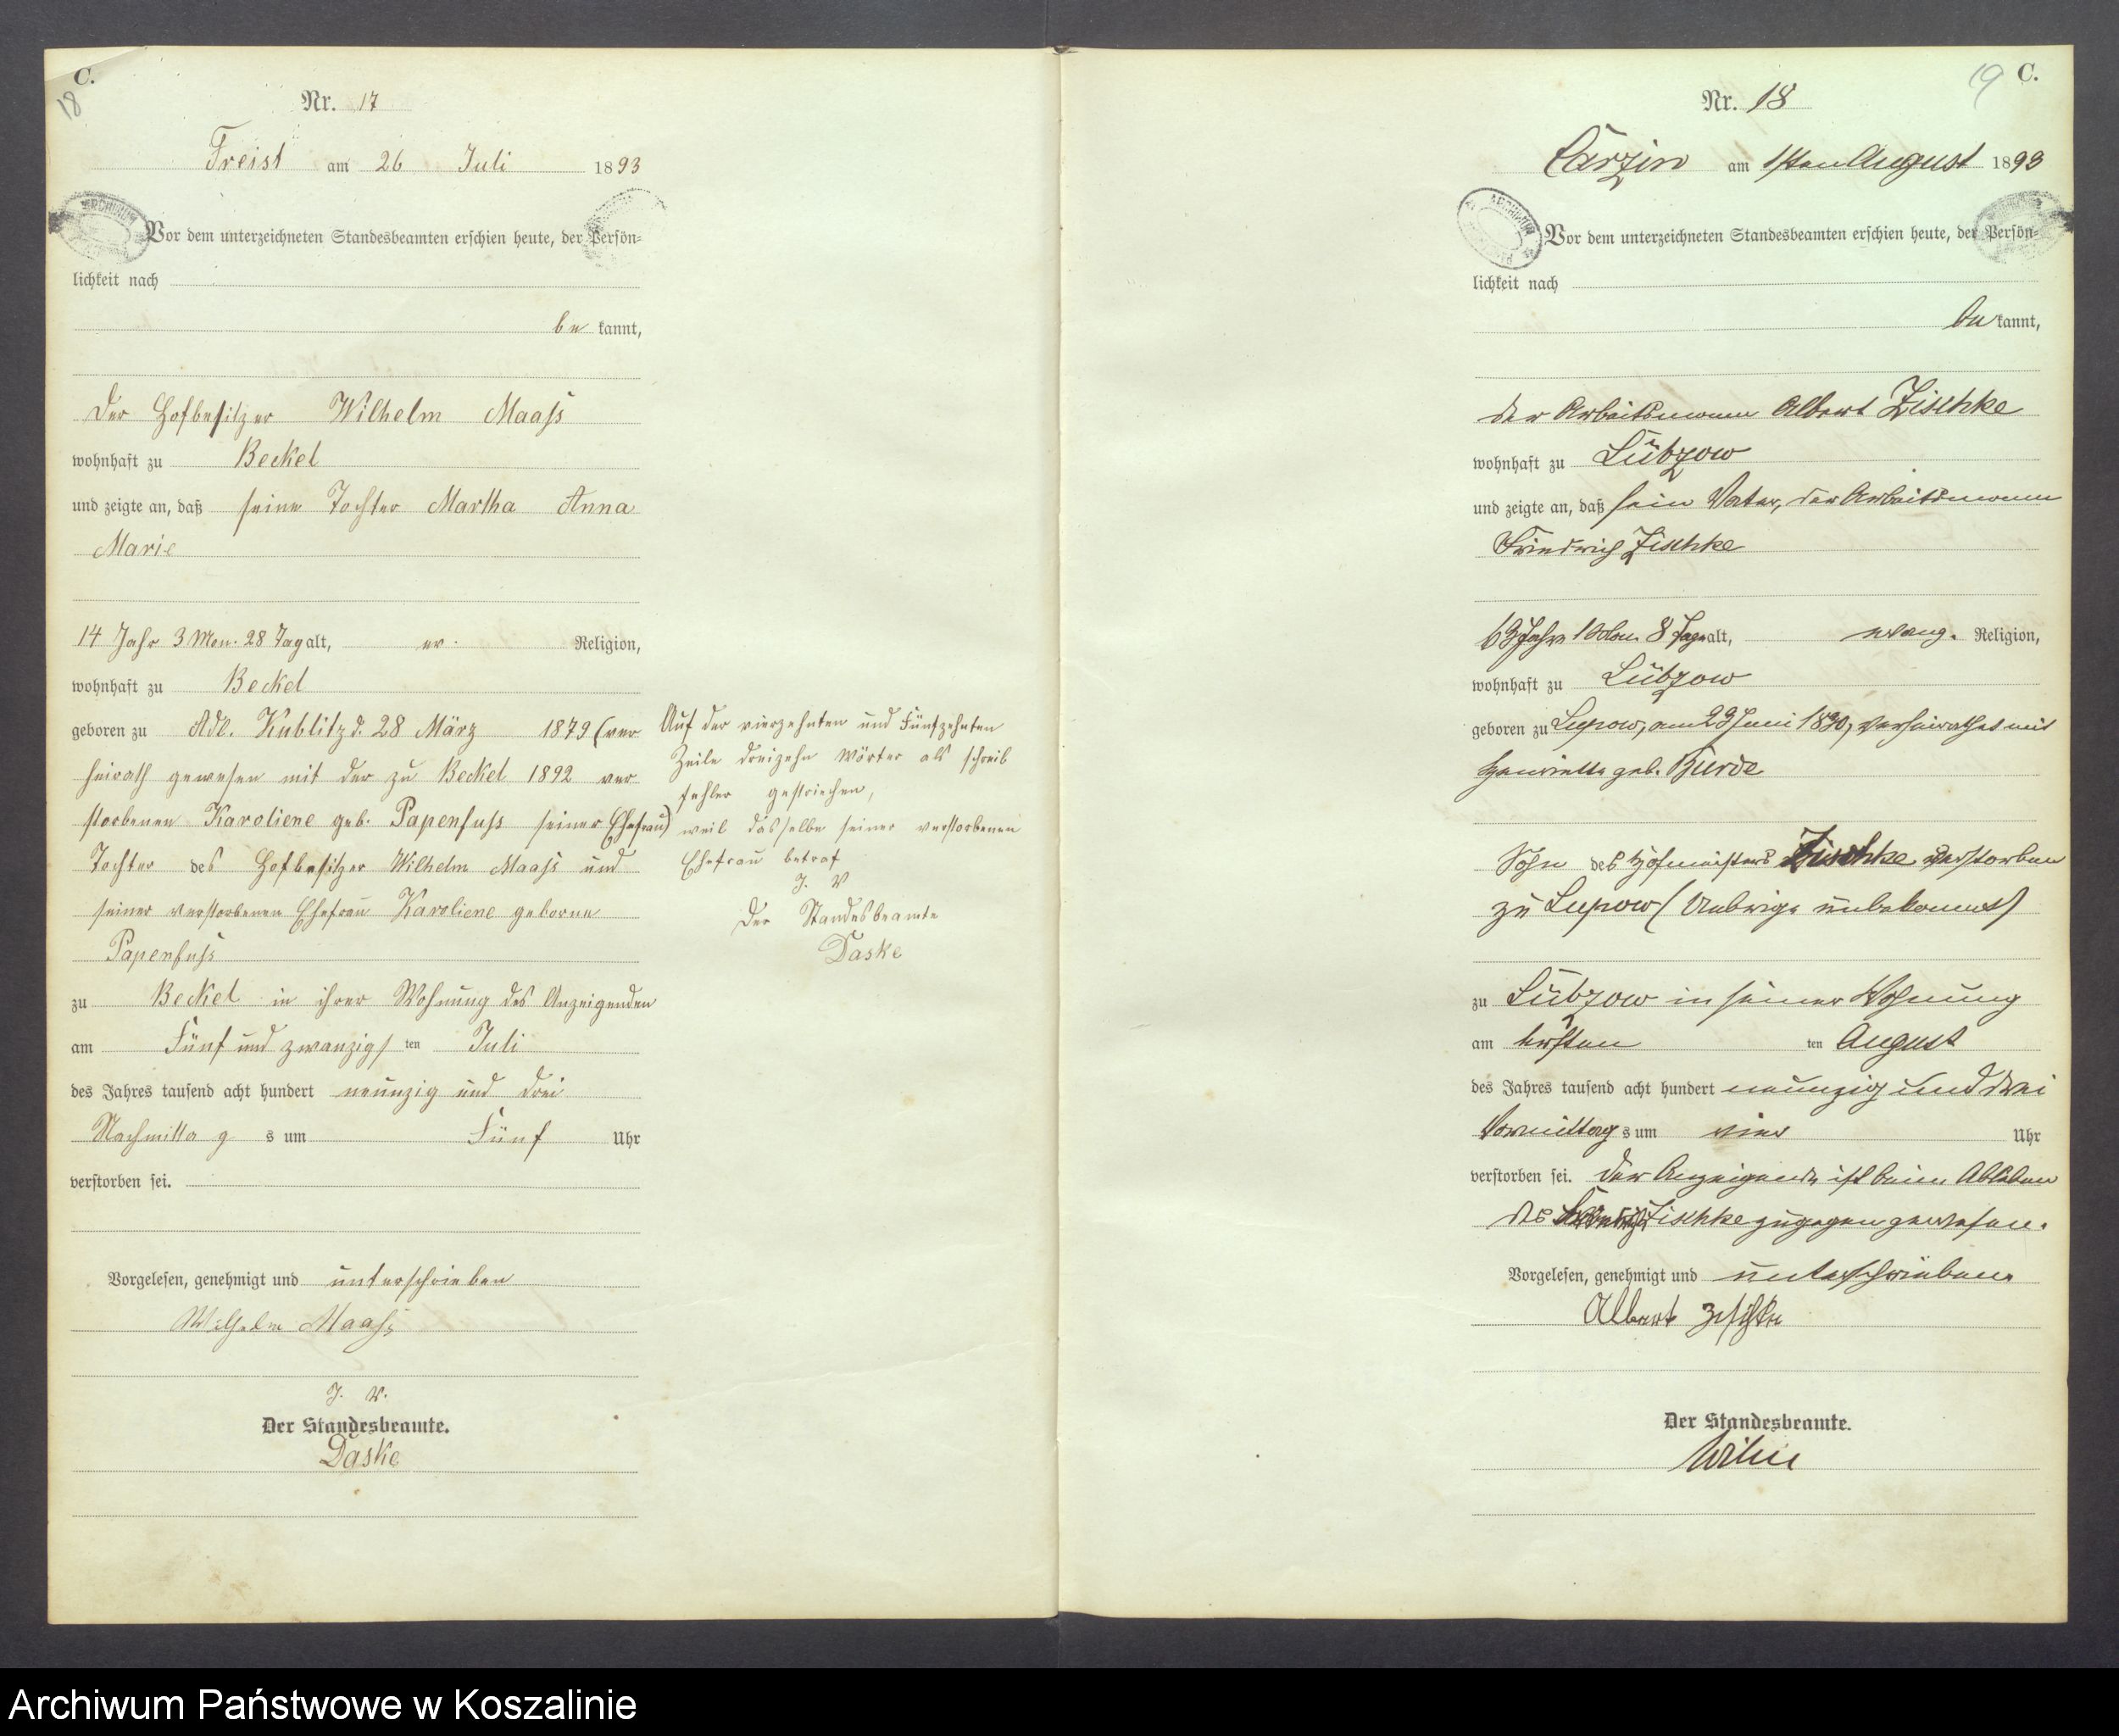 C.
18
Nr. 17
Freist am 26 Juli 1893
ARCHIWUM
Vor dem unterzeichneten Standesbeamten erschien heute, der Persön=
lichkeit nach
be kannt,
der Hofbesitzer Wilhelm Maaß
wohnhaft zu Beckel
und zeigte an, daß seine Tochter Martha Anna
Marie
14 Jahr 3 Mon. 28 Tag alt, ev. Religion,
wohnhaft zu Beckel
geboren zu Adl. Kublitz d. 28 März 1879 (ver
heirath gewesen mit der zu Beckel 1892 ver
storbenen Karoliene geb. Papenfuß seiner Ehefrau)
Tochter des Hofbesitzer Wilhelm Maaß und
seiner verstorbenen Ehefrau Karoliene geborne
Papenfuß
zu Beckel in ihrer Wohnung des Anzeigenden
am Fünf und zwanzigs ten Juli
des Jahres tausend acht hundert neunzig und drei
Nachmittag s um Fünf Uhr
verstorben sei.
Vorgelesen, genehmigt und unterschrieben
Wilhelm Maaß
J. V.
Der Standesbeamte.
Daske
Auf der vierzehnten und Fünfzehnten
Zeile dreizehn Wörter als schreib
fehler gestrichen,
weil dasselbe seiner verstorbenen
Ehefrau betraf
J. V
Der Standesbeamte
Daske
19 C.
Nr. 18
Carzin am 1sten August 1893
ARCHIWUM
Vor dem unterzeichneten Standesbeamten erschien heute, der Persön=
lichkeit nach
be kannt,
der Arbeitsmann Albert Zischke
wohnhaft zu Lübzow
und zeigte an, daß sein Vater, der Arbeitsmann
Friedrich Zischke
63 Jahre 1 Mon. 8 Tage alt, evang. Religion,
wohnhaft zu Lübzow
geboren zu Lupow, am 23 Juni 1830, verheirathet mit
Henriette geb. Burde
Sohn des Hofmeisters Zischke verstorben
zu Lupow (Uebrige unbekannt)
zu Lübzow in seiner Wohnung
am ersten ten August
des Jahres tausend acht hundert neunzig und drei
Vormittag s um vier Uhr
verstorben sei. Der Anzeigende ist beim Ableben
des Zischke zugegen gewesen.
Vorgelesen, genehmigt und unterschrieben
Albert Zischke
Der Standesbeamte.
Archiwum Państwowe w Koszalinie